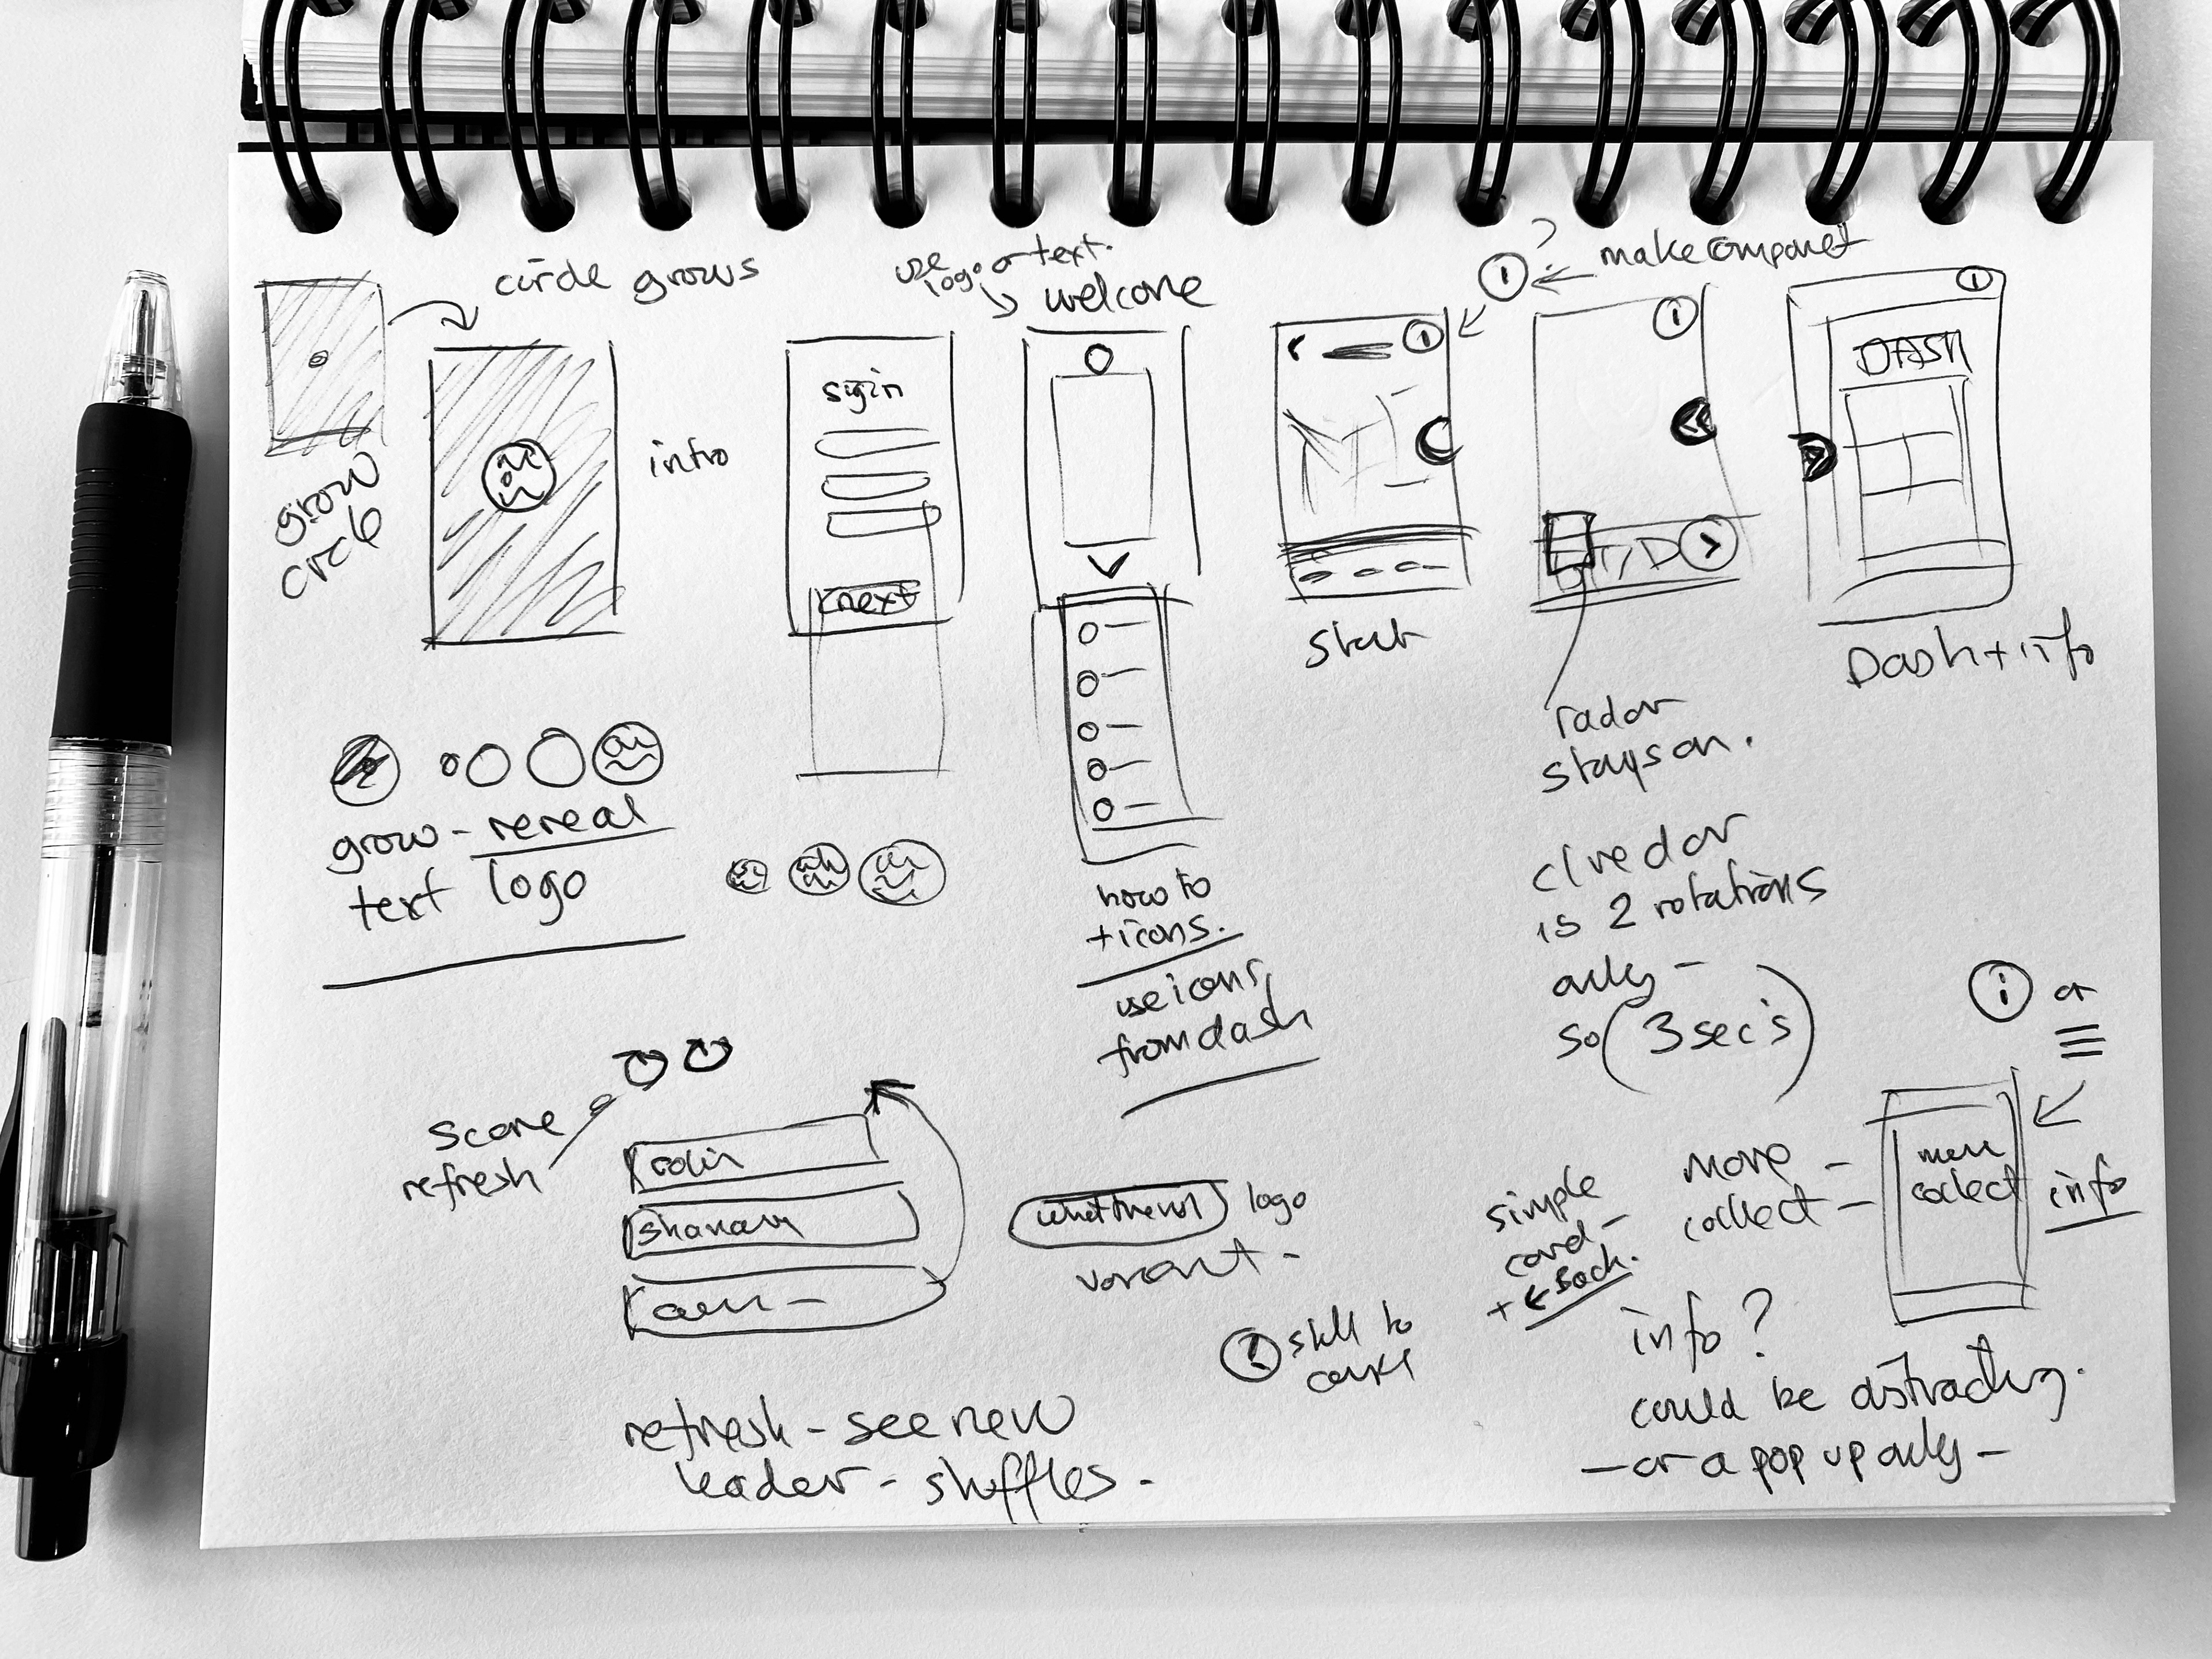 circle grows
grow
circle
intro
grow - reveal
text logo
sigin
next
use
logo or text.
welcome
how to
+ icons.
use icons
from dash
? make componet
start
radar
stays on.
is 2 rotations
only -
so (3 sec's)
DASH
Dash + info
score
refresh
colin
refresh - see new
leader - shuffles.
logo
i or
simple
card -
+ ← Back.
more -
collect -
collect
info
info?
could be distracting.
- or a pop up only -